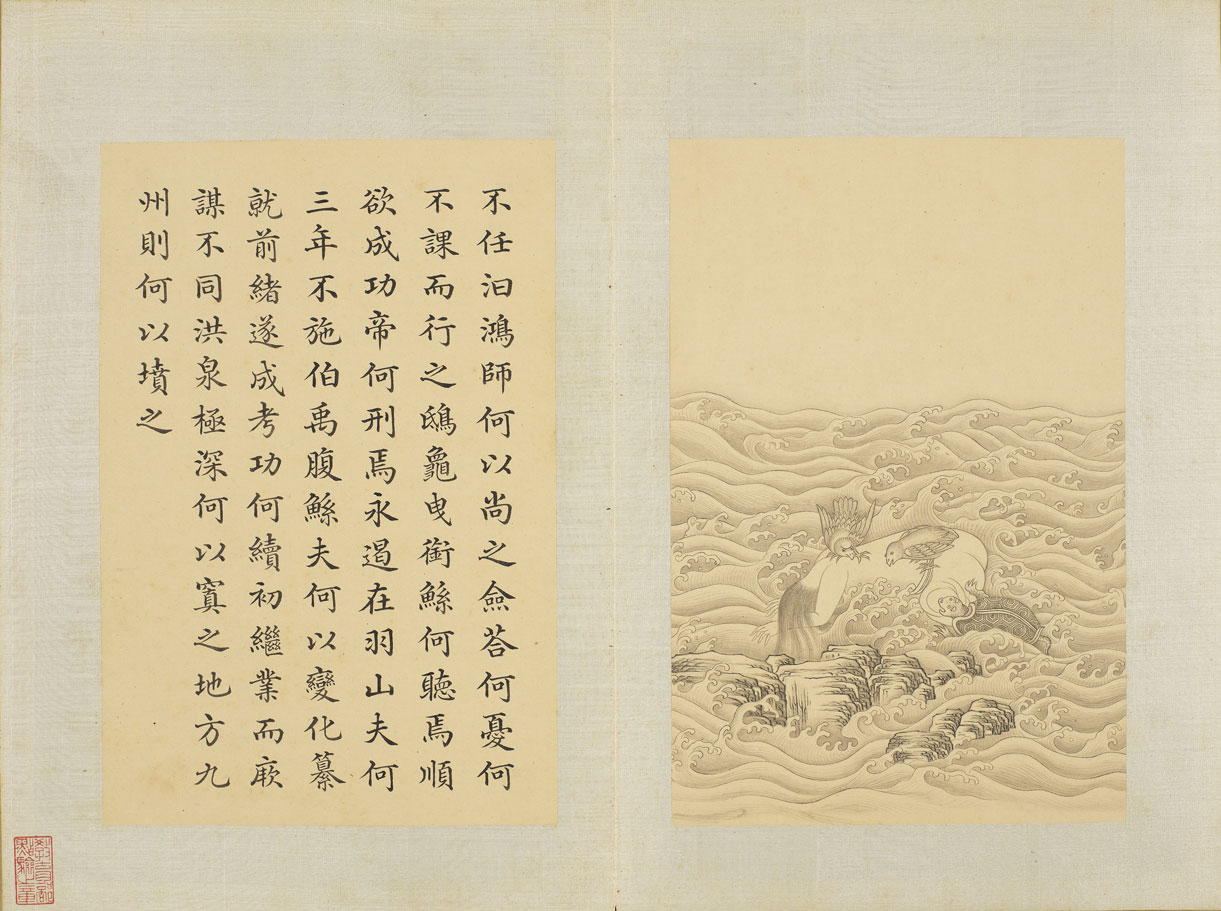 不任汩鴻師何以尚之僉荅何憂何
不課而行之鴟龜曳銜鮌何聽焉順
欲成功帝何刑焉永遏在羽山夫何
三年不施伯禹腹鮌夫何以變化纂
就前緒遂成考功何續初繼業而厥
謀不同洪泉極深何以窴之地方九
州則何以墳之